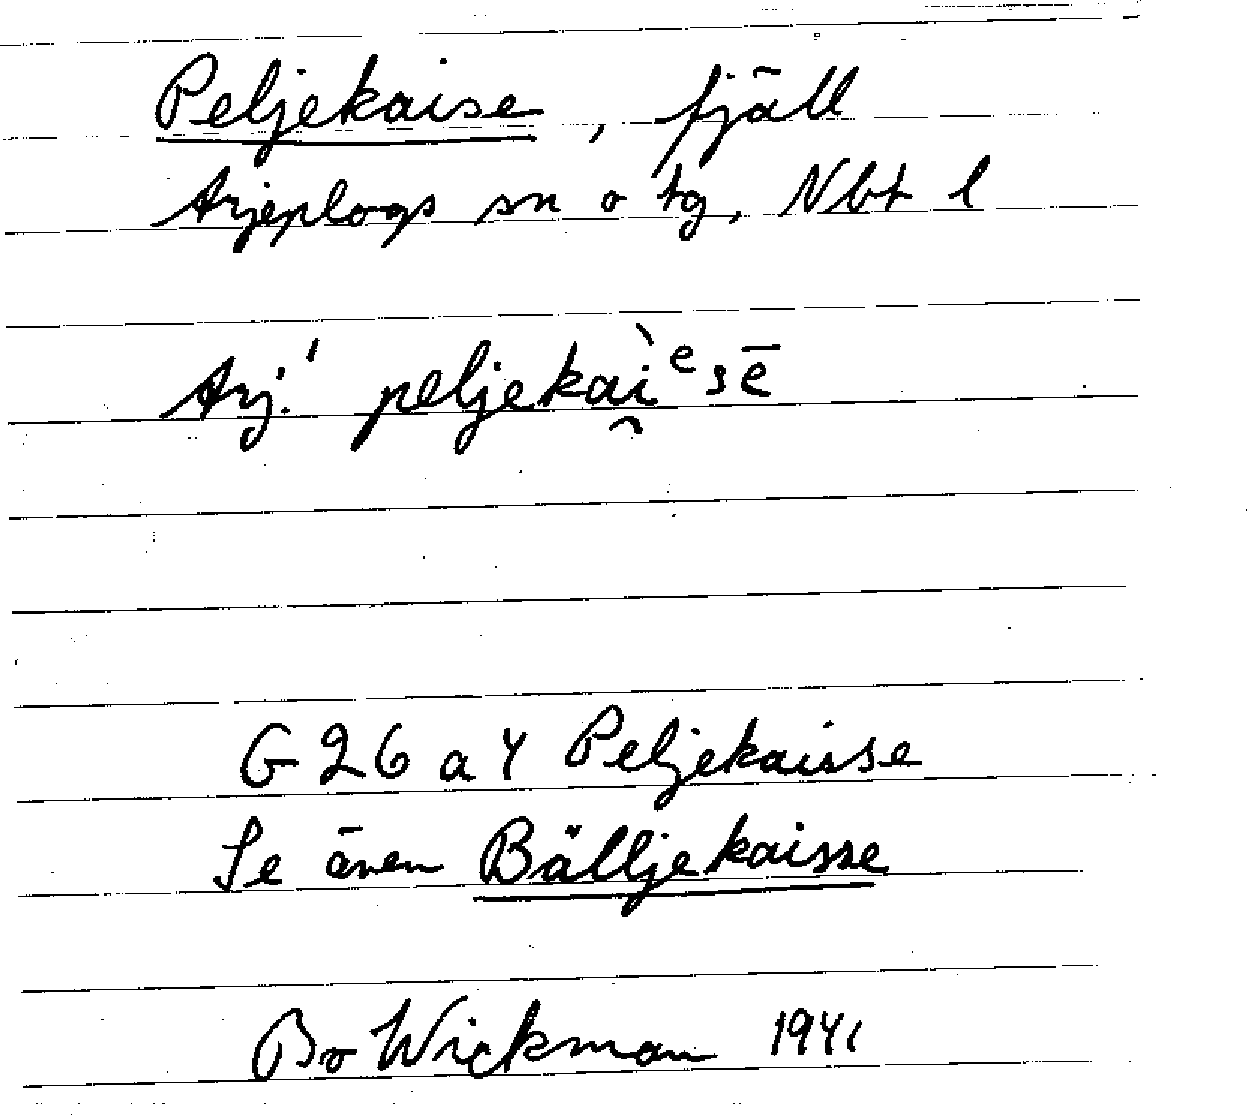 Peljekaise, fjäll
Arjeplogs sn o tg, Nbt l
Arj.' peljekaì̯ᵉsē
G 26 a Y Peljekaisse
Se även Bälljekaisse
Bo Wickman 1941